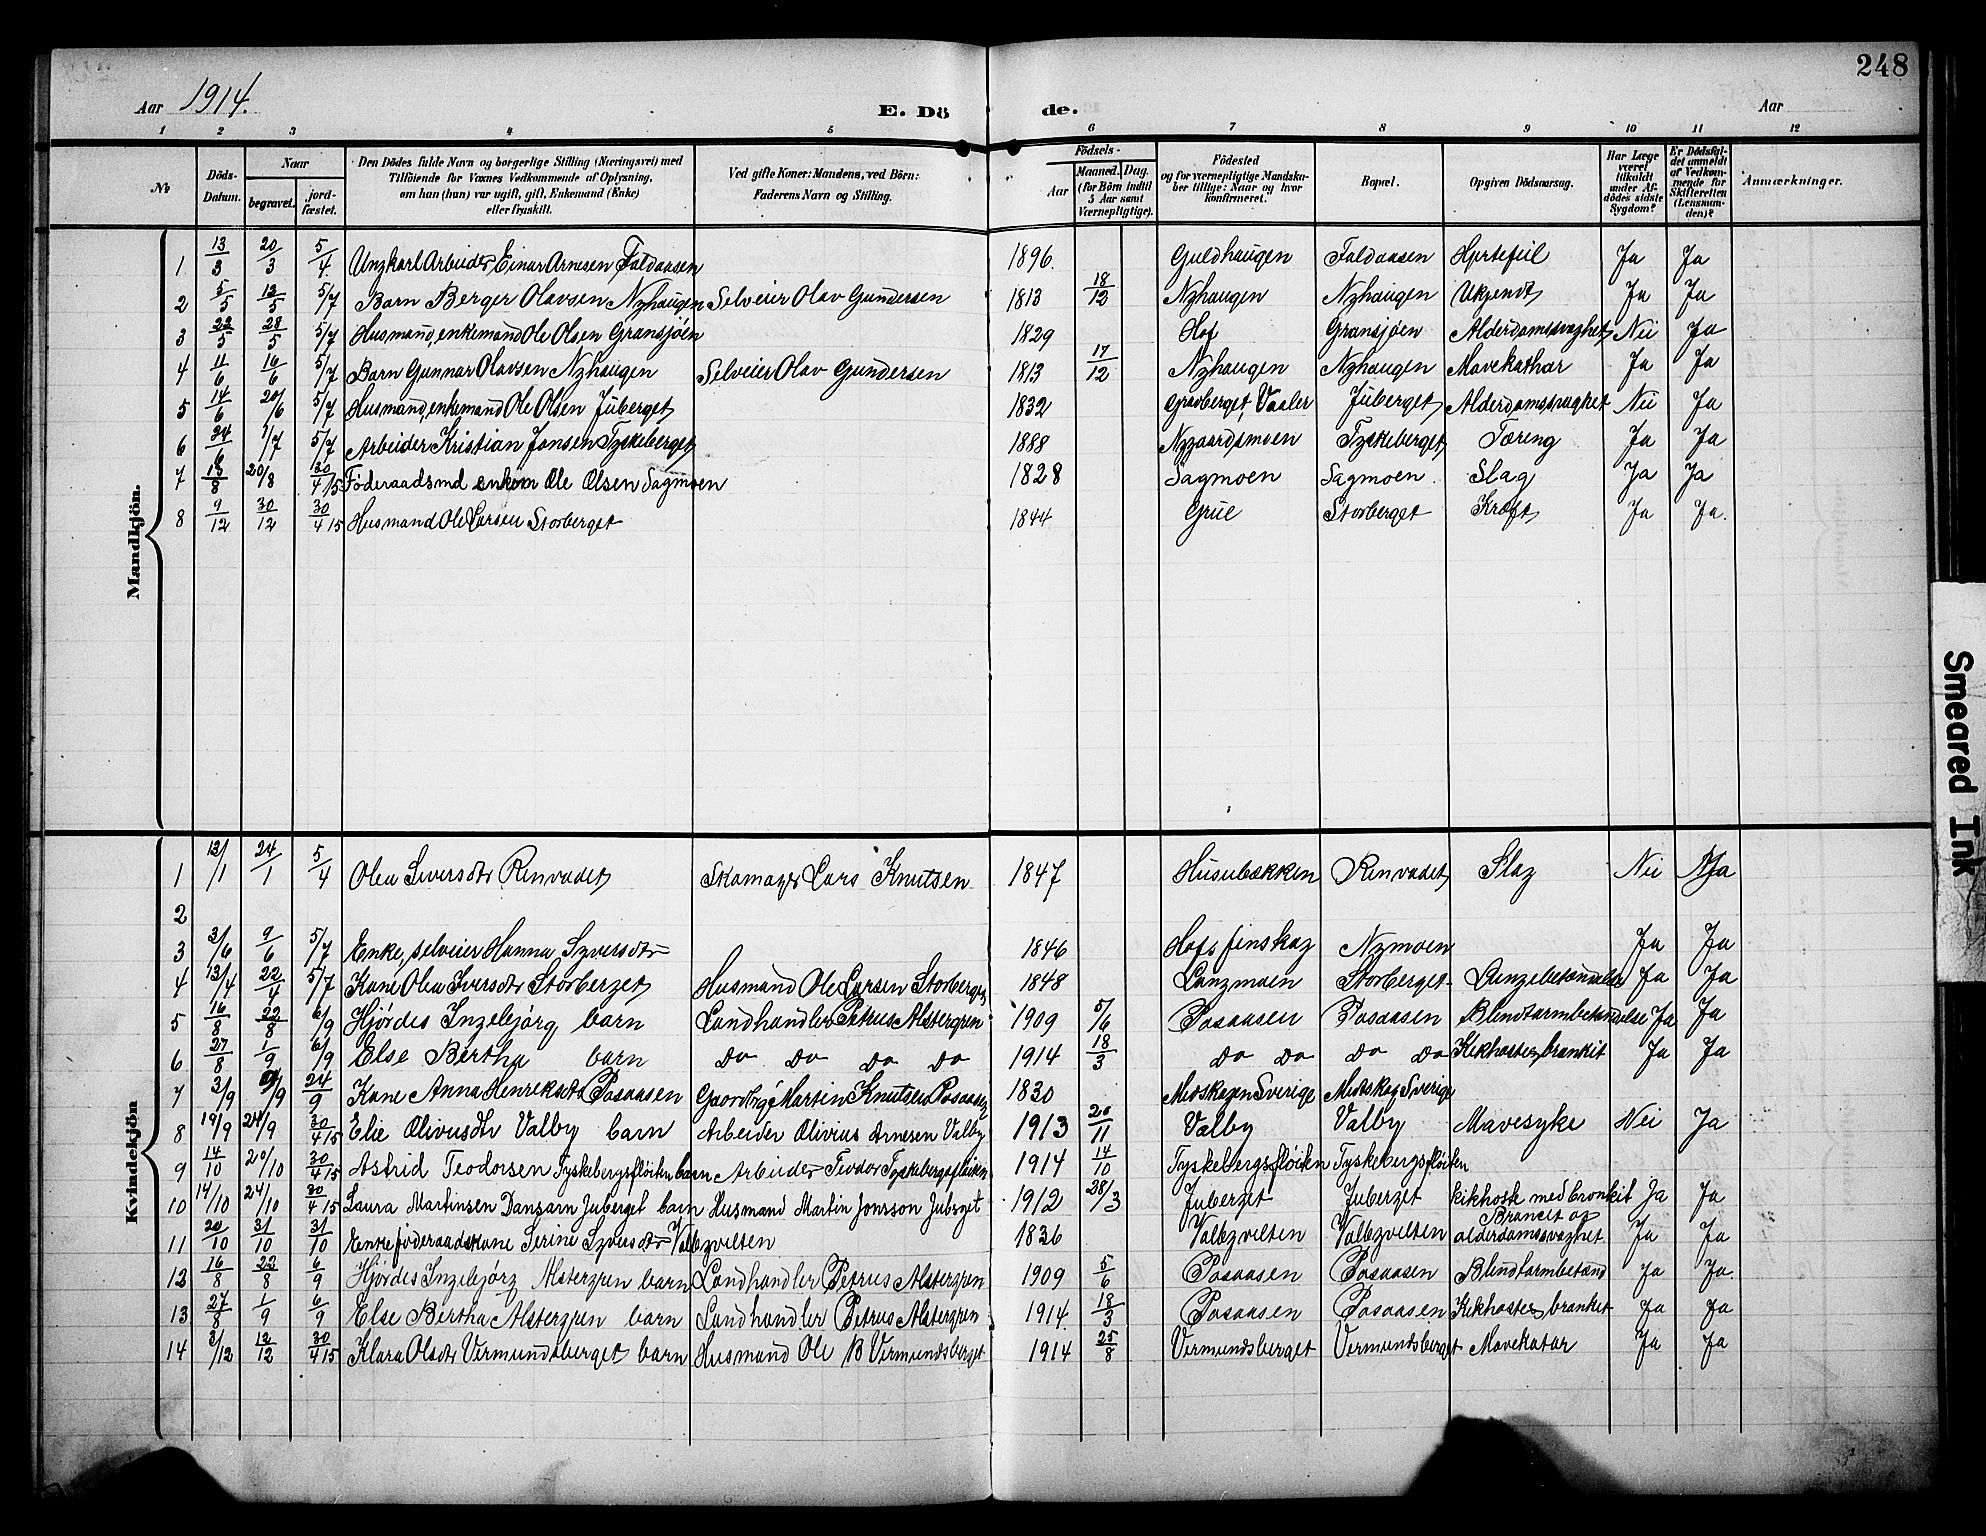 248
Aar 1914. E. Dö de. Aar
1 2 3 4 5 6 7 8 9 10 11 12
No
Döds-Datum.
Naar begravet. jord-fæstet.
Den Dödes fulde Navn og borgerlige Stilling (Næringsvei) med Tilföiende for Voxnes Vedkommende af Oplysning, om han (hun) var ugift, gift, Enkemand (Enke) eller fraskilt.
Ved gifte Koner: Mandens, ved Börn: Faderens Navn og Stilling.
Födsels- Aar Maaned. Dag. (for Börn indtil 5 Aar samt Værnepligtige).
Födested og for værnepligtige Mandskaber tillige: Naar og hvor konfirmeret.
Bopæl.
Opgiven Dödsaarsag.
Har Læge været tilkaldt under Afdödes sidste Sygdom?
Er Dödsfaldet anmeldt af Vedkommende for Skifteretten (Lensmanden)?
Anmærkninger.
Mandkjön.
1 13/3 20/3 5/4 Ungkarl Arbeider Einar Arnesen Faldaasen 1896. Guldhaugen Faldaasen Hjertefeil Ja Ja
2 5/5 13/5 5/7 Barn Berger Olavsen Nyhaugen Selveier Olav Gundersen 1813 18/12 Nyhaugen Nyhaugen Ukjendt Ja Ja
3 22/5 28/5 5/7 Husmand, enkemand Ole Olsen Gransjøen 1829 Hof Gransjøen Alderdomssvaghet Nei Ja
4 11/6 16/6 5/7 Barn Gunnar Olavsen Nyhaugen Selveier Olav Gundersen 1813 17/12 Nyhaugen Nyhaugen Mavekathar Ja Ja
5 14/6 20/6 5/7 Husmand, enkemand Ole Olsen Juberget 1832 Gravberget, Vaaler Juberget Alderdomssvaghet Nei Ja
6 24/6 1/7 5/7 Arbeider Kristian Jonsen Tyskeberget 1888 Nygaardsmoen Tyskeberget Tæring Ja Ja
7 13/8 20/8 30/4 15 Føderaadsmd enkem Ole Olsen Sagmoen 1828 Sagmoen Sagmoen. Slag Ja Ja
8 9/12 30/12 30/4 15 Husmand Ole Larsen Storberget 1844 Grue Storberget Kræft Ja Ja.
Kvindekjön
1 13/1 24/1 5/4 Olea Siversdtr Rinvadet Skomager Lars Knutsen 1847 Husubakken Rinvadet Slag Nei Ja
2
3 3/6 9/6 5/7 Enke, selveier Hanna Syversdtr 1846 Hofs finskog Nymoen Ja Ja
4 13/4 22/4 5/7 Kone Olea Iversdtr Storberget Husmand Ole Larsen Storberget 1848 Langmoen Storberget Lungebetændelse Ja Ja
5 16/8 22/8 6/9 Hjørdes Ingebjørg barn Landhandler Petrus Alstergren 1909 5/6 Posaasen Posaasen Blindtarmbetændelse Ja Ja
6 27/8 1/9 6/9 Else Bertha barn do do do do 1914 18/3 do do do do Kikhoste, bronkit Ja Ja
7 3/9 /9 24/9 Kone Anna Henriksdtr Posaasen Gaardbrg. Martin Knutsen Posaasen 1830 Medskogen Sverige Medskog Sverige
8 19/9 24/9 30/4 15 Elie Olivusdtr Valby barn Arbeider Olivius Arnesen Valby 1913 20/11 Valby Valby Mavesyke Nei Ja
9 14/10 20/10 30/4 15 Astrid Teodorsen Tyskebergsfløiten barn Arbeider Teodor Tyskebergsfløiten 1914 14/10 Tyskebergsfløiten Tyskebergsfløiten
10 14/10 24/10 30/4 15 Laura Martinsen Dansarn Juberget barn Husmand Martin Jonsson Juberget 1912 28/3 Juberget Juberget kikhoste med bronkit Ja Ja
11 20/10 31/10 31/10 Enke føderaadskone Serine Syversdtr Valbyvilten 1836 Valbyvilten Valbyvilten Broncit og alderdomssvaghet Ja Ja
12 16/8 22/8 6/9 Hjørdes Ingebjørg Alstergren barn Landhandler Petrus Alstergren 1909 5/6 Posaasen Posaasen Blindtarmbetænd Ja Ja.
13 27/8 1/9 6/9 Else Bertha Alstergren barn Landhandler Petrus Alstergren 1914. 18/3 Posaasen Posaasen Kikhoste, bronkit Ja Ja
14 3/12 12/12 30/4 15 Klara Olsdtr Vermundsberget barn Husmand Ole B Vermundsberget 1914 25/8 Vermundsberget Vermundsberget Mavekatar Ja Ja
Smeared Ink